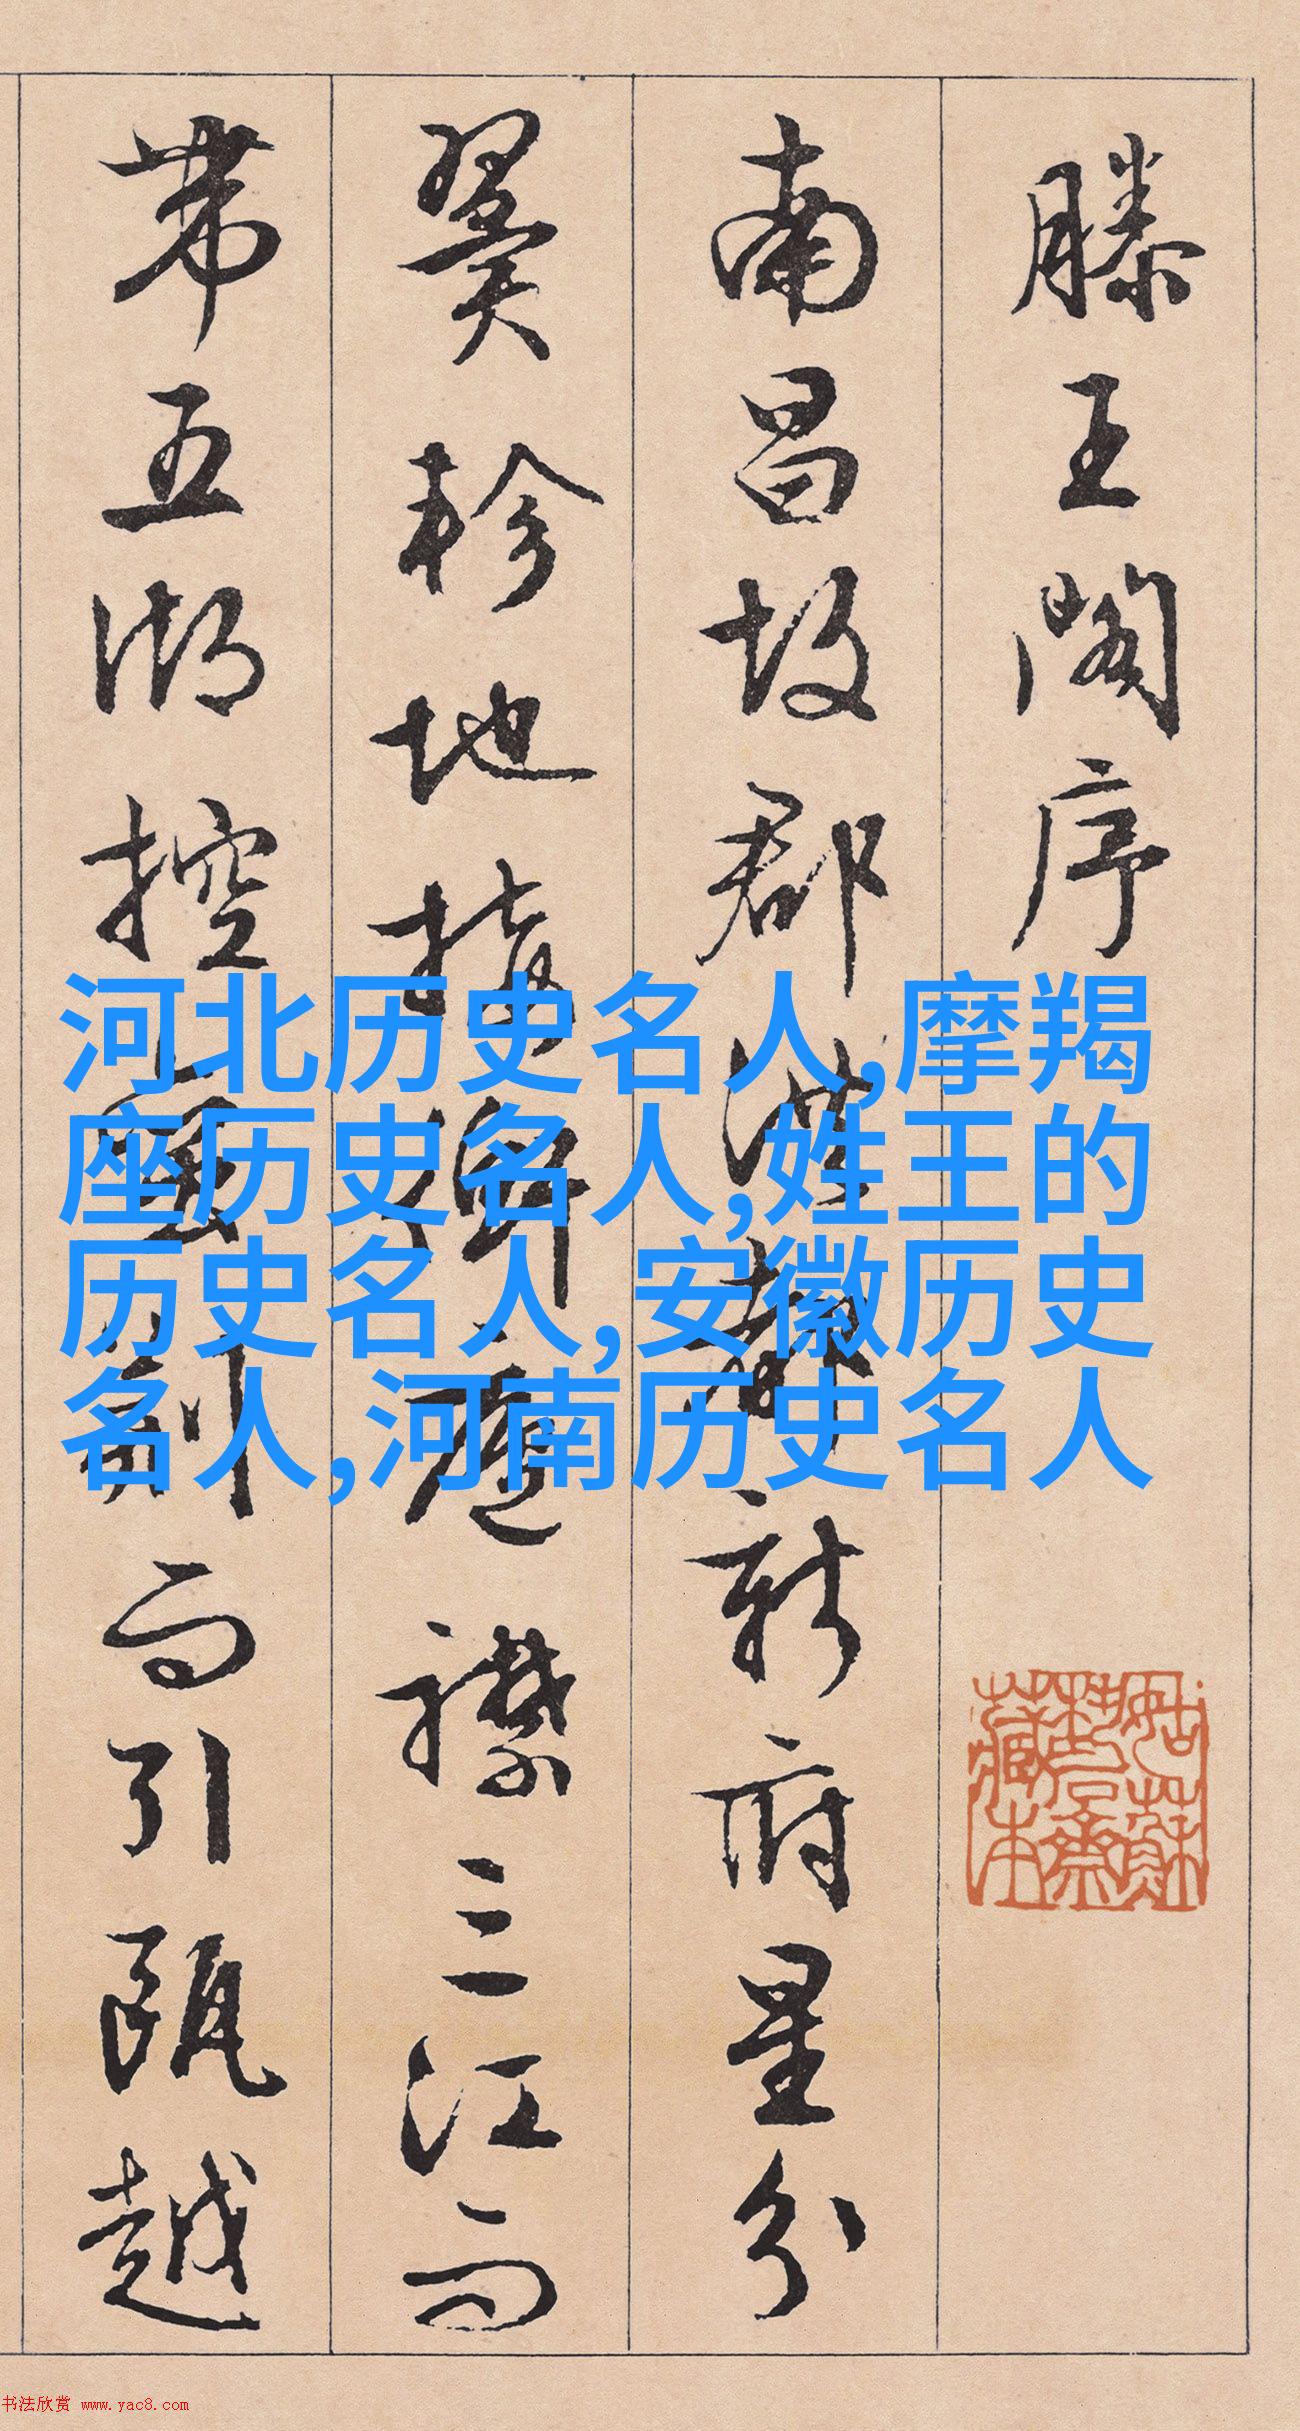 滕王閣序
南昌故郡洪都新府星分
翼軫地接衡廬襟三江而
帶五湖控蠻荊而引甌越
河北历史名人,摩羯
座历史名人,姓王的
历史名人,安徽历史
名人,河南历史名人
姑蘇
齋
藏本
书法欣赏 www.yac8.com